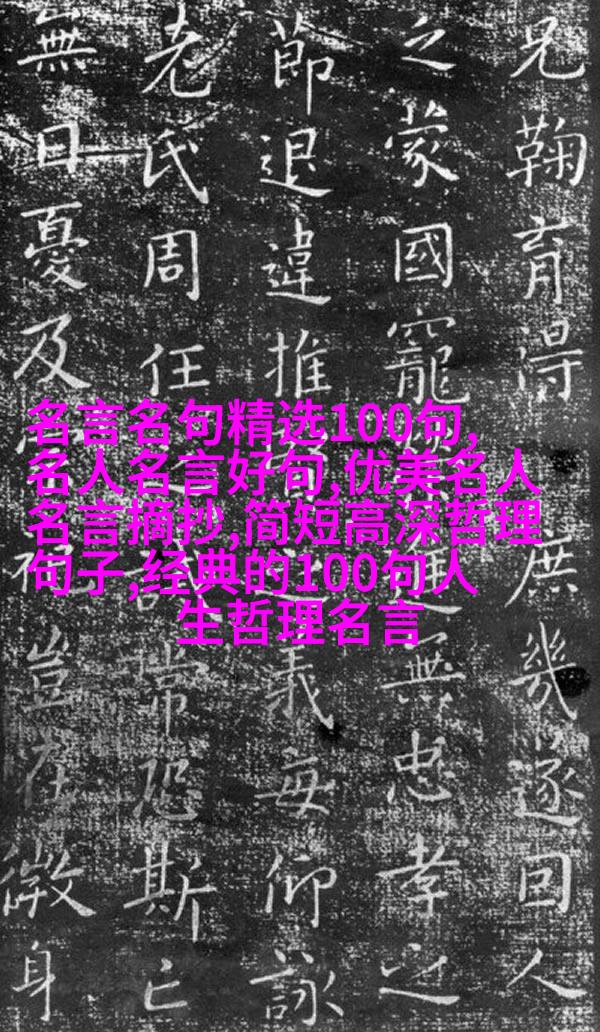 名言名句精选100句,
名人名言好句,优美名人
名言摘抄,简短高深哲理
句子,经典的100句人
生哲理名言
兄鞠育得庶幾遂回人
之蒙國寵無忠孝之
節退違推之義每仰詠
老氏周任常恐斯亡
無日憂及豈在微身